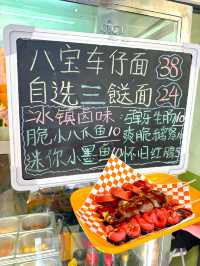 八宝车仔面 38
自选三餸面 24
冰镇卤味: 弹牙牛筋10
脆小八爪鱼10 爽脆鸭肾10
迷你小墨鱼10 怀旧红肠